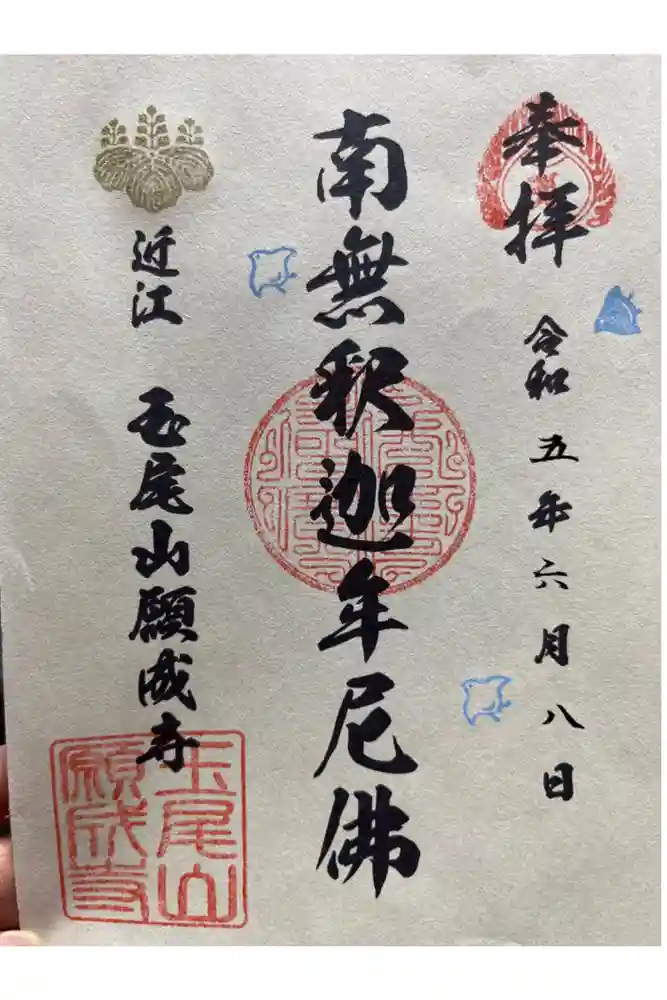 奉拝
令和五年六月八日
南無釈迦牟尼佛
近江 玉尾山願成寺
玉尾山
願成寺